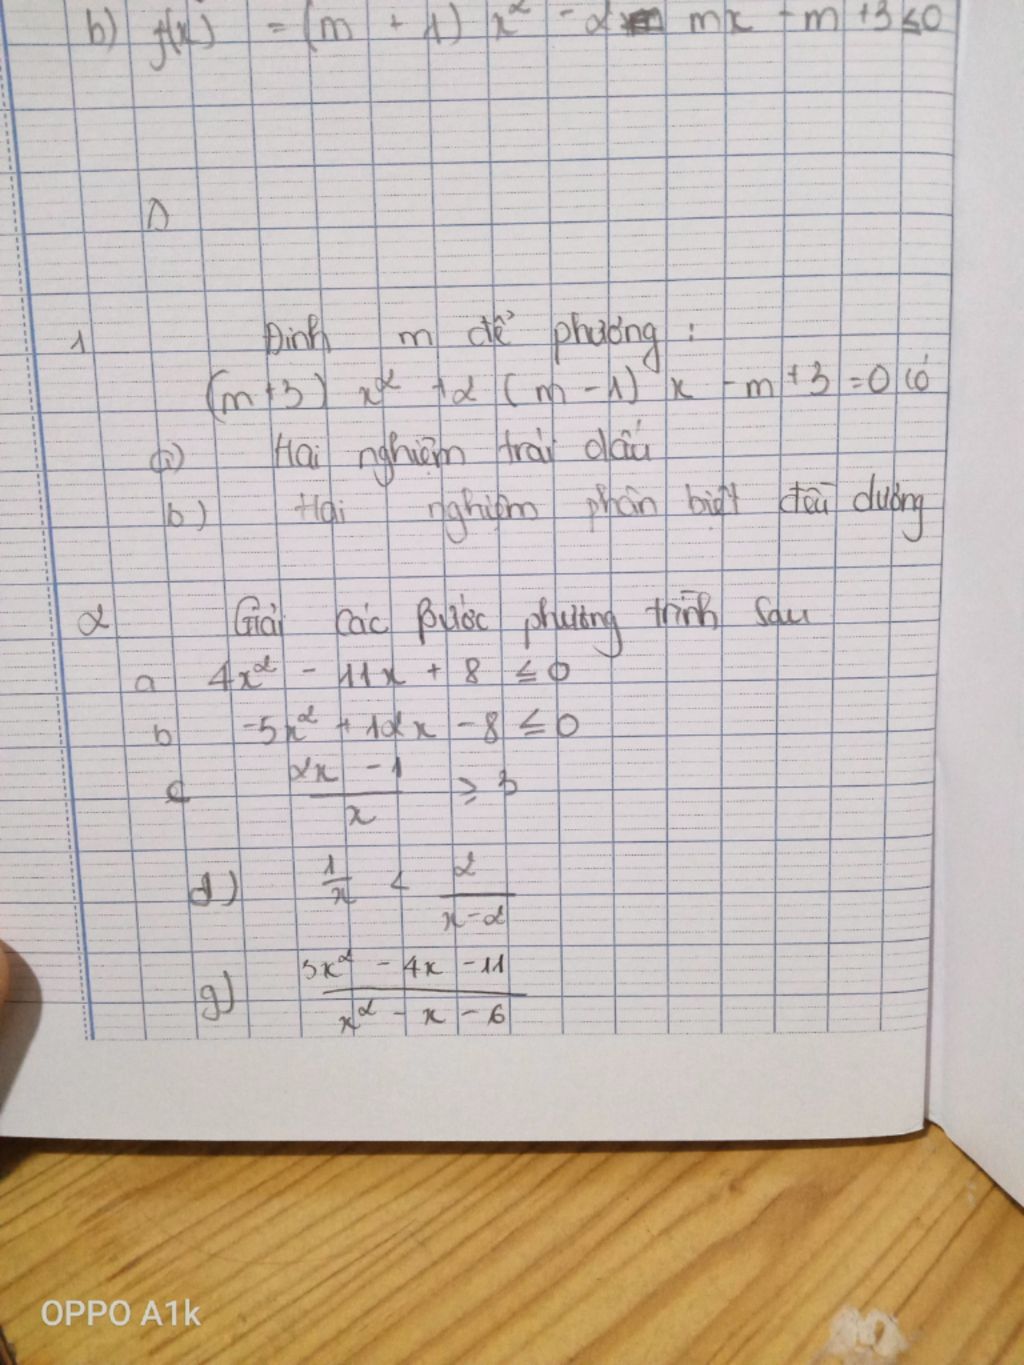 b) f(x) = (m + 1) x² - 2 mx - m + 3 ≤ 0
1)
1 Định m để phương :
(m+3) x² + 2 (m - 1) x - m + 3 = 0 có
a) Hai nghiệm trái dấu
b) Hai nghiệm phân biệt đều dương
2 Giải các Bước phương trình sau
a 4x² - 11x + 8 ≤ 0
b -5x² + 12x - 8 ≤ 0
c (2x - 1)/x ≥ 3
d) 1/x < 2/(x-2)
g) (3x² - 4x - 11)/(x² - x - 6)
OPPO A1k